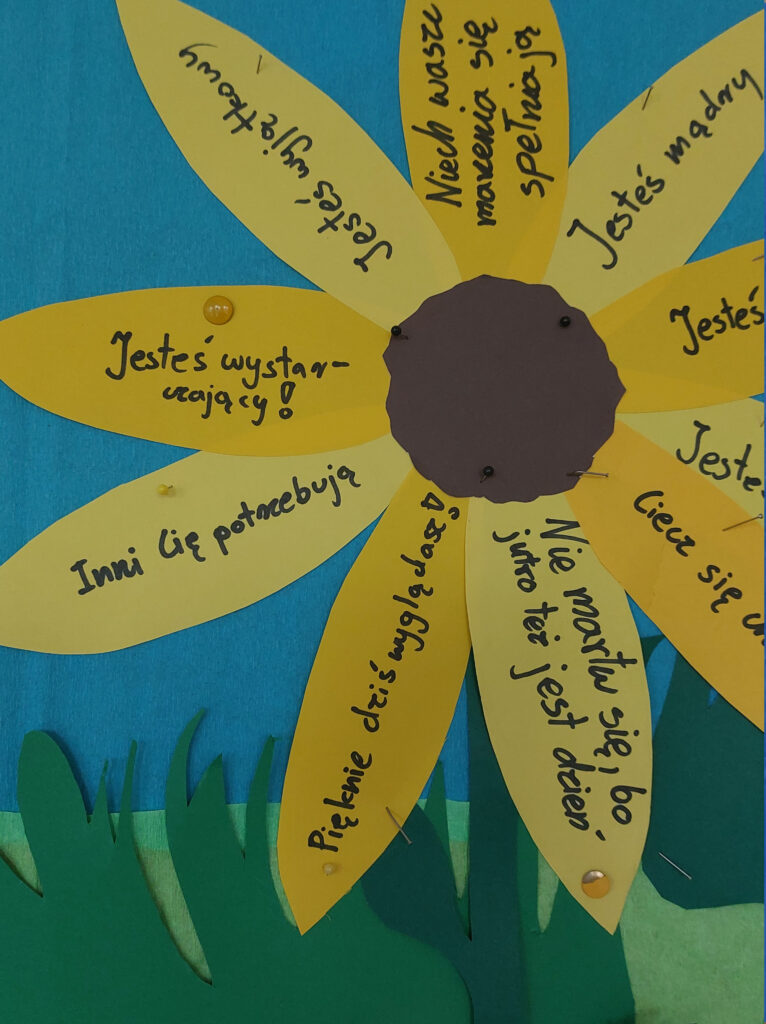 Niech wasze
marzenia się
spełniają
Jesteś mądry
Jesteś
Jesteś
Ciecz się
Nie martw się, bo
jutro też jest dzień-
Pięknie dziś wyglądasz
Inni Cię potrzebują
Jesteś wystar-
czający!
Jesteś wyjątkowy